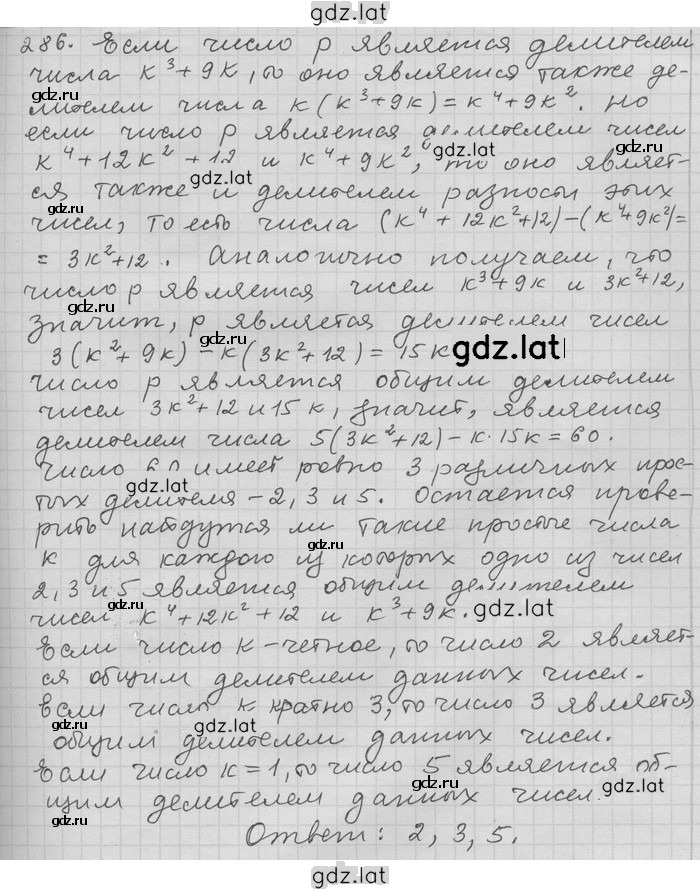 gdz.lat
286. Если число p является делителем
числа к³+9к, то оно является также де-
gdz.lat gdz.lat
лителем числа к(к³+9к)=к⁴+9к². Но
gdz.lat
если число p является делителем чисел
к⁴+12к²+12 и к⁴+9к², то оно являет-
gdz.lat gdz.lat
ся также и делителем разности этих
чисел, то есть числа (к⁴+12к²+12)-(к⁴+9к²)=
gdz.lat
= 3к²+12. Аналогично получаем, что
gdz.lat
число p является чисел к³+9к и 3к²+12,
gdz.lat
значит, p является делителем чисел
3(к²+9к)-к(3к²+12)=15к gdz.lat
число p является общим делителем
gdz.lat
чисел 3к²+12 и 15к, значит, является
делителем числа 5(3к²+12)-к·15к=60.
gdz.lat
Число 60 имеет ровно 3 различных прос-
тых делителя - 2, 3 и 5. Остается прове-
gdz.lat
рить найдутся ли такие простые числа
gdz.lat
к для каждого из которых одно из чисел
2, 3 и 5 является общим делителем
gdz.lat
чисел к⁴+12к²+12 и к³+9к. gdz.lat
Если число к-четное, то число 2 являет-
ся общим делителем данных чисел.
gdz.lat
Если число к кратно 3, то число 3 является
gdz.lat
общим делителем данных чисел.
gdz.lat
Если число к=1, то число 5 является об-
щим делителем данных чисел.
gdz.lat
Ответ: 2, 3, 5.
gdz.lat